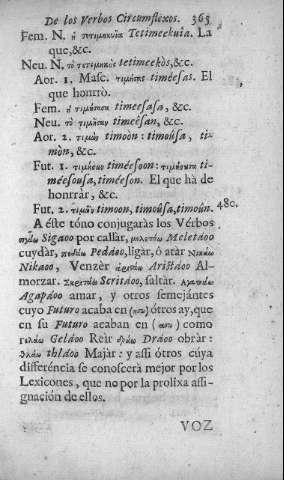 De los Verbos Circumflexos. 363
Fem. N. ἡ τετιμηκυῖα Tetimeekuîa. La
que, &c.
Neu. N. τὸ τετιμηκὸς tetimeekòs, &c.
Aor. 1. Masc. τιμήσας timéesas. El
que honrrò.
Fem. ἡ τιμήσασα timéesasa, &c.
Neu. τὸ τιμῆσαν timéesan, &c.
Aor. 2. τιμὼν timoòn: timoûsa, ti-
mòn, &c.
Fut. 1. τιμήσων timéesoon: τιμήσουσα ti-
méesousa, timéeson. El que hà de
honrrár, &c.
Fut. 2. τιμῶν timoon, timoûsa, timoûn.
480.
A éste tóno conjugaràs los Vérbos
σιγάω Sigaoo por callàr, μελετάω Meletáoo
cuydàr, πεδάω Pedáoo, ligàr, ó atár Νικάω
Nikáoo, Venzèr ἀριστάω Aristáoo Al-
morzar. Σκιρτάω Scritáoo, saltàr. Ἀγαπάω
Agapáoo amar, y otros semejántes
cuyo Futuro acaba en (ησω) ótros ay, que
en su Futuro acaban en (ασω) como
γελάω Geláoo Reir δράω Dráoo obràr:
θλάω thláoo Majàr: y assi ótros cúya
differéncia se conoscerà mejor por los
Lexicones, que no por la prolixa assi-
gnación de ellos.
VOZ